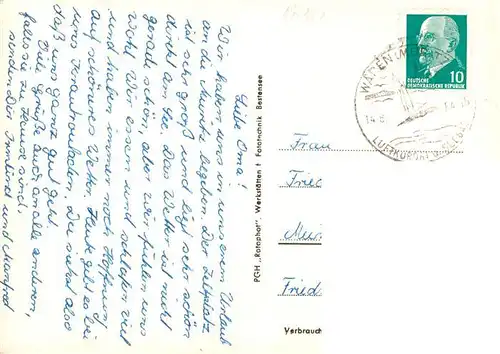 Liebe Oma!
Wir haben uns in unserem Urlaub
an die Müritz begeben. Der Zeltplatz
ist sehr groß und liegt sehr schön
direkt am See. Das Wetter ist nicht
gerade schön, aber wir fühlen uns
wohl. Wir essen und schlafen viel
und haben immer noch Hoffnung
auf schöneres Wetter. Heute gibt es bei
uns Du siehst also
daß uns ganz gut geht.
Viele Grüße auch an alle anderen,
falls sie zu Hause sind,
senden Dir Irmlind und Manfred
PGH „Rotophot“ Werkstätten f. Fototechnik Bestensee
DEUTSCHE
DEMOKRATISCHE REPUBLIK
10
WAREN (MÜRITZ)
LUFTKURORT
Frau
Fried
Verbrauch